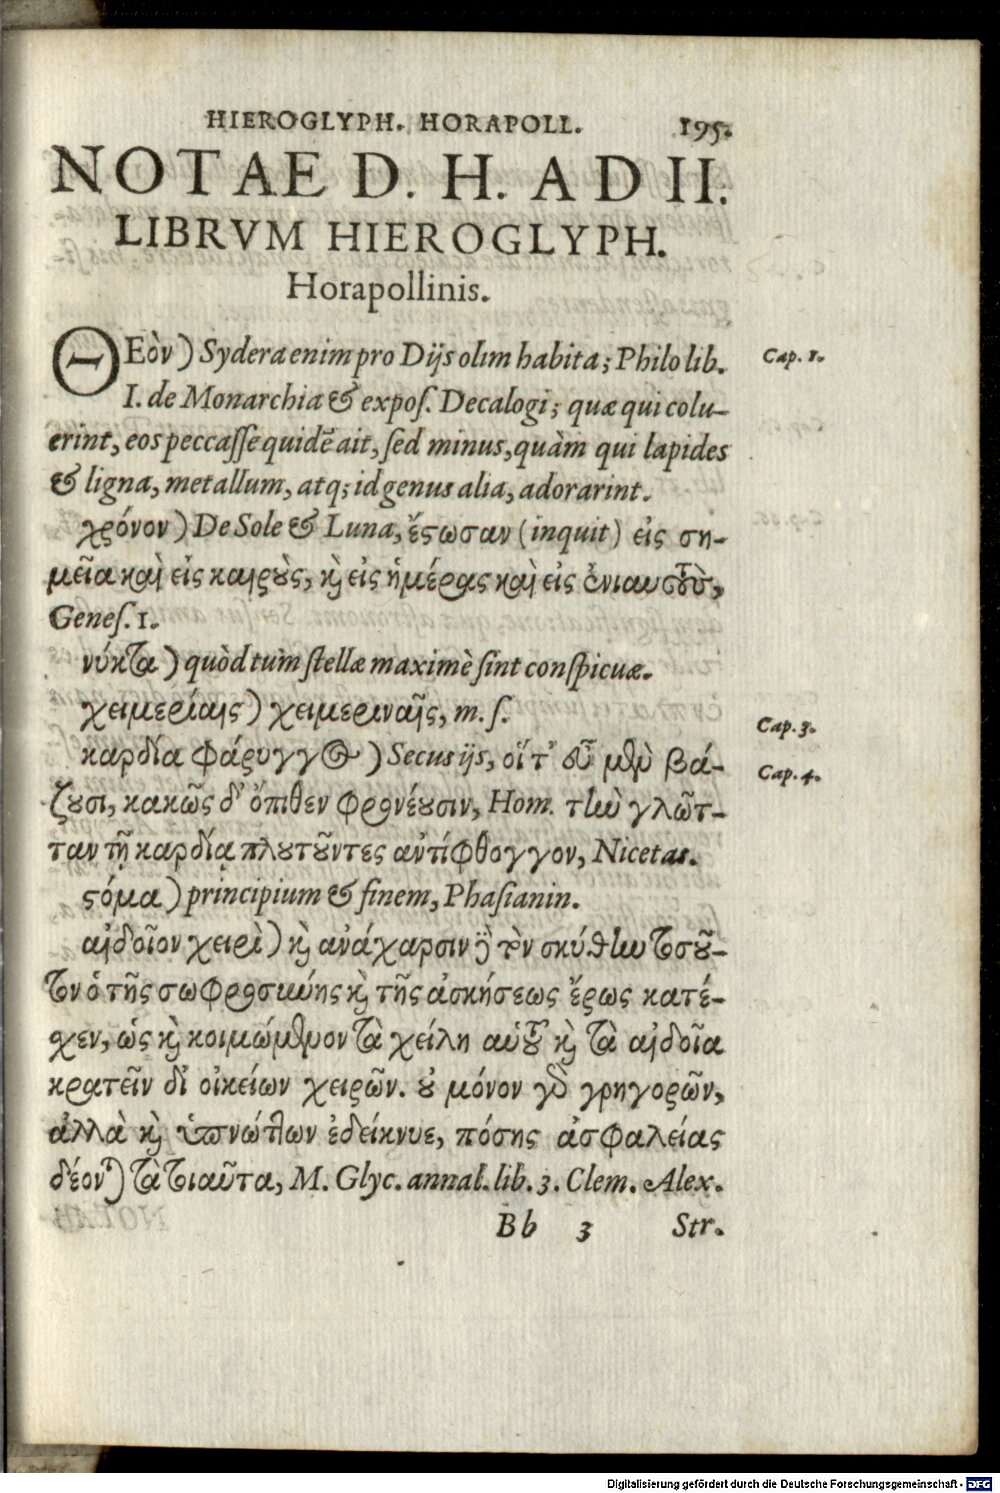 HIEROGLYPH. HORAPOLL. 195.
NOTAE D. H. AD II.
LIBRVM HIEROGLYPH.
Horapollinis.
ΘΕὸν) Sydera enim pro Dijs olim habita; Philo lib. Cap. 1.
I. de Monarchia & expos. Decalogi; quæ qui colu-
erint, eos peccasse quidē ait, sed minus, quàm qui lapides
& ligna, metallum, atq; id genus alia, adorarint.
χρόνον) De Sole & Luna, ἔστωσαν (inquit) εἰς ση-
μεῖα καὶ εἰς καιροὺς, καὶ εἰς ἡμέρας καὶ εἰς ἐνιαυτοὺς,
Genes. 1.
νύκτα) quòd tum stellæ maximè sint conspicuæ.
χειμερίαις) χειμεριναῖς, m. s. Cap. 3.
καρδία φάρυγγος) Secus ijs, οἵ τ' εὖ μὲν βά- Cap. 4.
ζουσι, κακῶς δ' ὄπιθεν φρονέουσιν, Hom. τὴν γλῶτ-
ταν τῇ καρδίᾳ πλουτοῦντες ἀντίφθογγον, Nicetas.
στόμα) principium & finem, Phasianin.
αἰδοῖον χειρὶ) καὶ ἀνάχαρσιν δὲ τὸν σκύθην τοσοῦ-
τον ὁ τῆς σωφροσύνης καὶ τῆς ἀσκήσεως ἔρως κατέ-
σχεν, ὡς καὶ κοιμώμενον τὰ χείλη αὐτοῦ καὶ τὰ αἰδοῖα
κρατεῖν δι' οἰκείων χειρῶν. οὐ μόνον γὰρ γρηγορῶν,
ἀλλὰ καὶ ὑπνώττων ἐδείκνυε, πόσης ἀσφαλείας
δέον) τὰ τοιαῦτα, M. Glyc. annal. lib. 3. Clem. Alex.
Bb 3 Str.
Digitalisierung gefördert durch die Deutsche Forschungsgemeinschaft - DFG